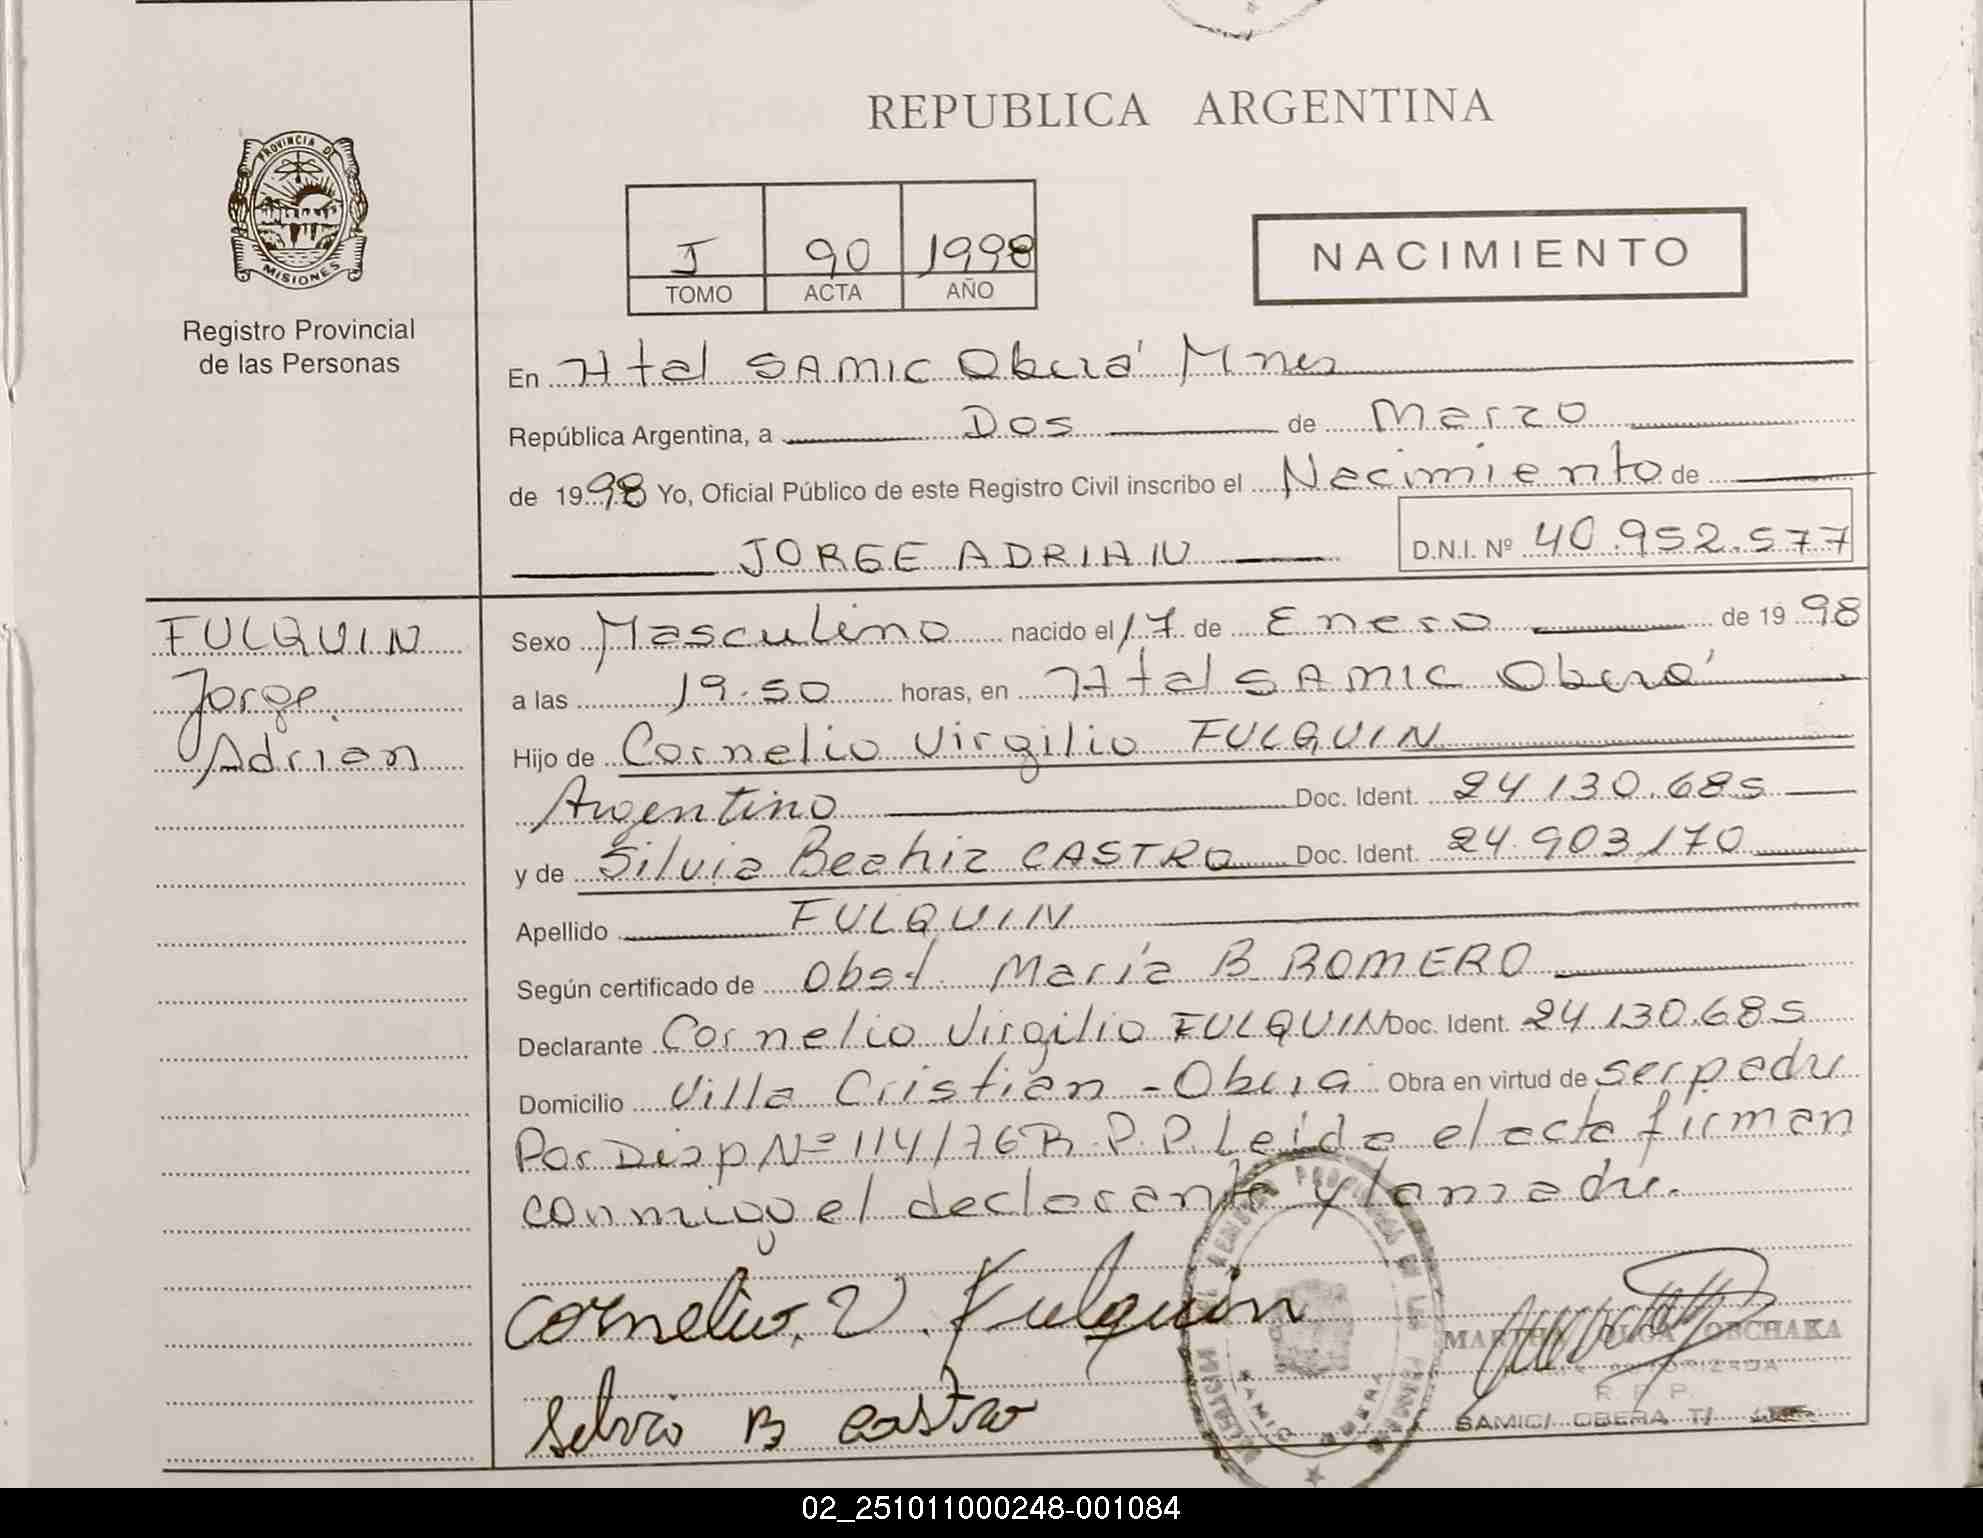 REPUBLICA ARGENTINA
PROVINCIA DE
MISIONES
Registro Provincial
de las Personas
J 90 1998
TOMO ACTA AÑO
NACIMIENTO
En Htal SAMIC Oberá Mnes
República Argentina, a Dos de Marzo
de 1998 Yo, Oficial Público de este Registro Civil inscribo el Nacimiento de
JORGE ADRIAN D.N.I. Nº 40.952.577
FULQUIN
Jorge
Adrian
Sexo Masculino nacido el 17 de Enero de 1998
a las 19.50 horas, en Htal SAMIC Oberá
Hijo de Cornelio Virgilio FULQUIN
Argentino Doc. Ident. 24.130.685
y de Silvia Beatriz CASTRO Doc. Ident. 24.903.170
Apellido FULQUIN
Según certificado de Obst. María B ROMERO
Declarante Cornelio Virgilio FULQUIN Doc. Ident. 24.130.685
Domicilio Villa Cristian - Obera Obra en virtud de ser padre
Por Disp Nº 114/76 R.P.P. Leída el acta firman
conmigo el declarante y la madre.
Cornelio. V. Fulquin
Silvia B Castro
OBCHAKA
R. P. P.
SAMIC/ OBERA T/
02_251011000248-001084